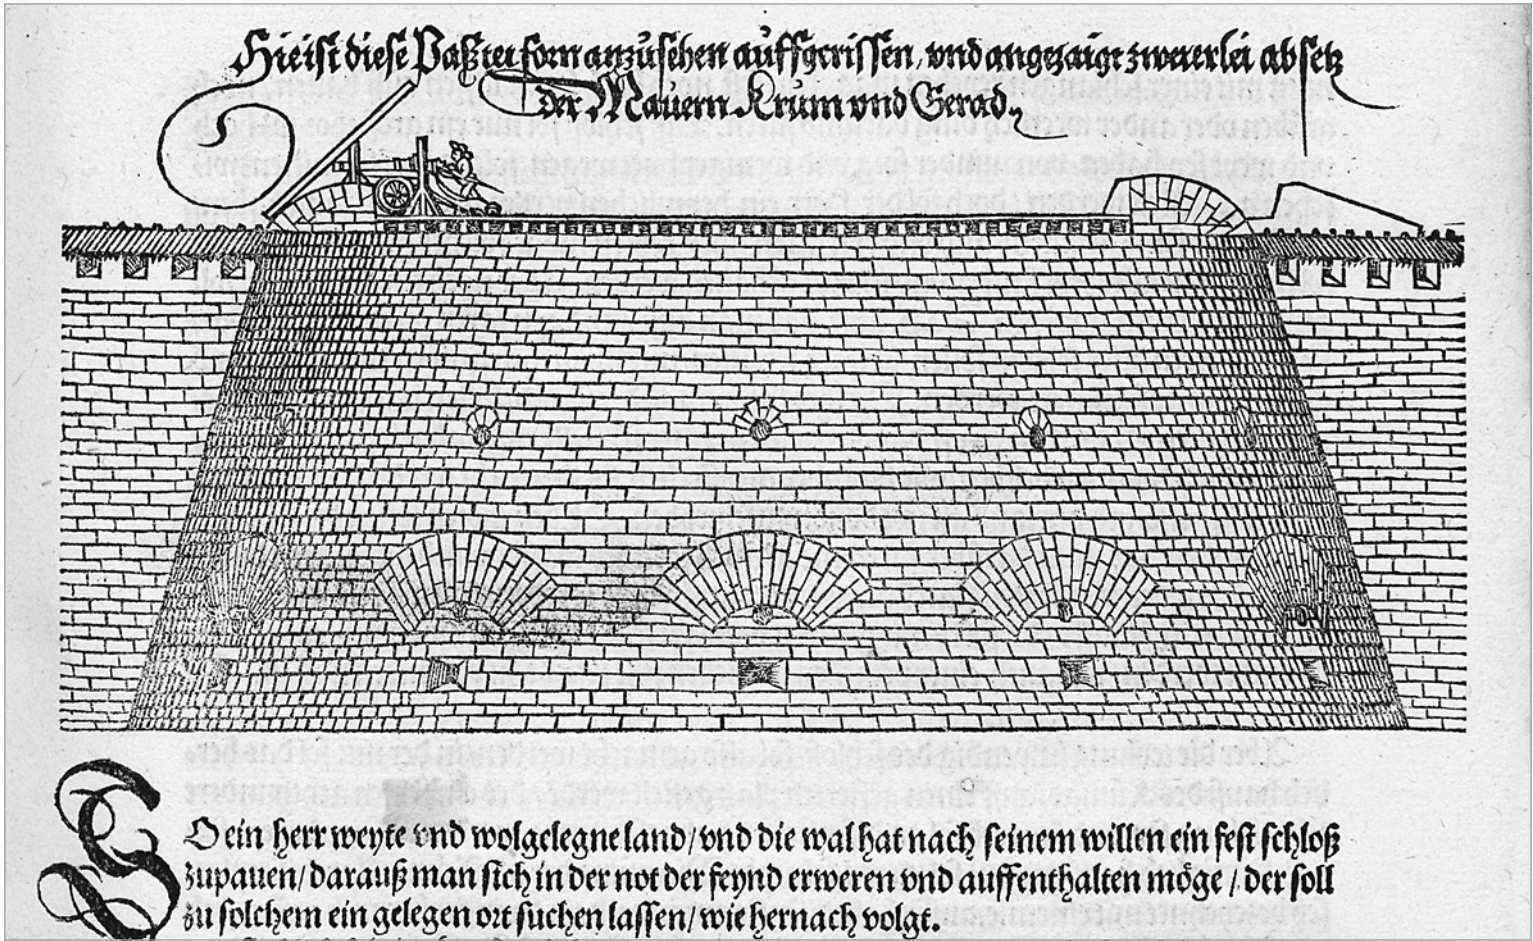 Hie ist diese Paßtei forn anzusehen auffgerissen/ vnd angezaigt zweierlei absetz
der Mauern Krum vnd Gerad.
SO ein herr weyte vnd wolgelegne land/ vnd die wal hat nach seinem willen ein fest schloß
zupauen/ darauß man sich in der not der feynd erweren vnd auffenthalten möge/ der soll
zu solchem ein gelegen ort suchen lassen/ wie hernach volgt.